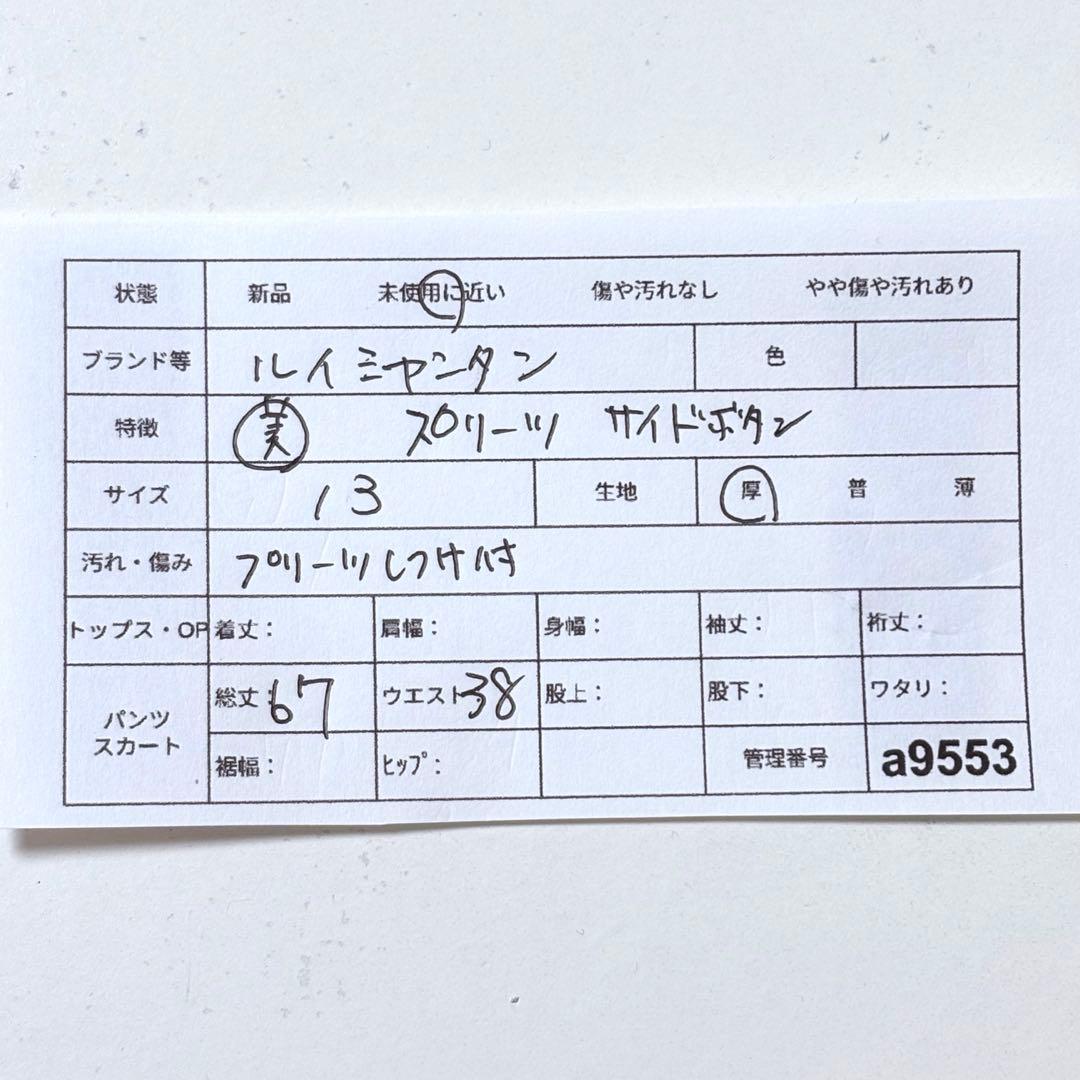 状態 新品 未使用に近い 傷や汚れなし やや傷や汚れあり
ブランド等 ルイミヤンタン 色
特徴 美 スプリーツ サイドボタン
サイズ 13 生地 厚 普 薄
汚れ・傷み プリーツしつけ付
トップス・OP 着丈: 肩幅: 身幅: 袖丈: 裄丈:
パンツ スカート
総丈:67 ウエスト38 股上: 股下: ワタリ:
裾幅: ヒップ: 管理番号 a9553